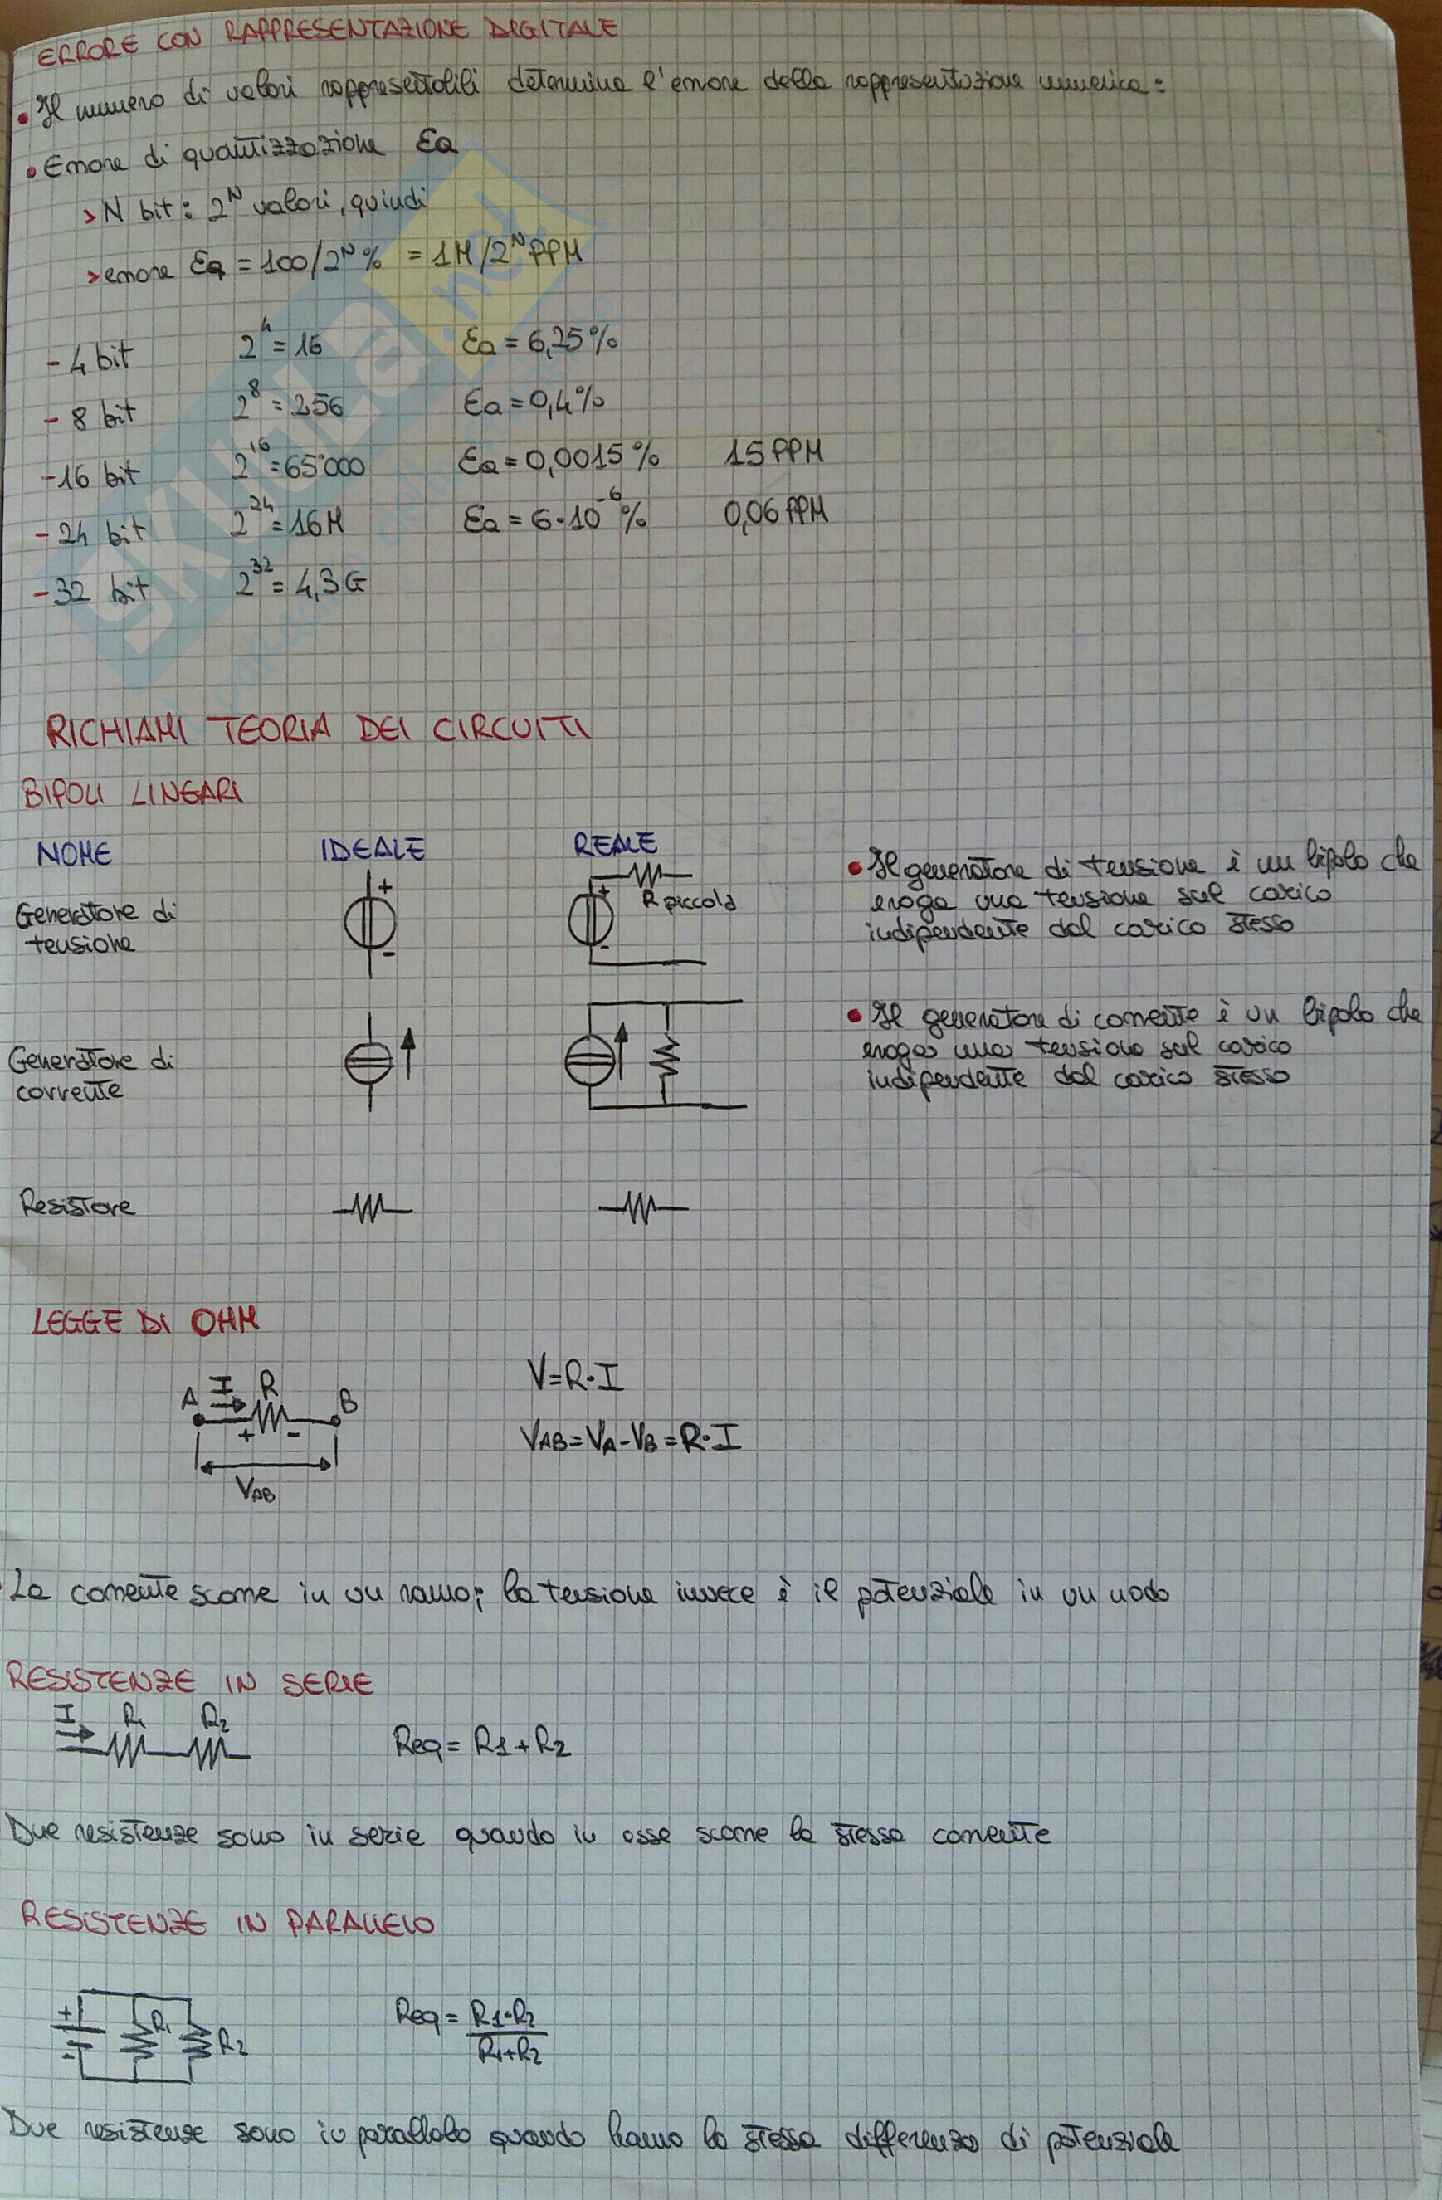 ERRORE CON RAPPRESENTAZIONE DIGITALE
• Il numero di valori rappresentabili determina l'errore della rappresentazione numerica:
• Errore di quantizzazione εQ
> N bit: 2^N valori, quindi
> errore εQ = 100/2^N % = 1M/2^N PPM
- 4 bit 2^4 = 16 εQ = 6,25%
- 8 bit 2^8 = 256 εQ = 0,4%
- 16 bit 2^16 = 65'000 εQ = 0,0015% 15 PPM
- 24 bit 2^24 = 16M εQ = 6·10^-6 % 0,06 PPM
- 32 bit 2^32 = 4,3G
SKUOLa.net
RICHIAMI TEORIA DEI CIRCUITI
BIPOLI LINEARI
NOME IDEALE REALE
Generatore di
tensione
+
-
+
R piccola
• Il generatore di tensione è un bipolo che
eroga una tensione sul carico
indipendente dal carico stesso
Generatore di
corrente
• Il generatore di corrente è un bipolo che
eroga una tensione sul carico
indipendente dal carico stesso
Resistore
LEGGE DI OHM
A I R B
+ -
VAB
V=R·I
VAB=VA-VB=R·I
La corrente scorre in un ramo; la tensione invece è il potenziale in un nodo
RESISTENZE IN SERIE
I R1 R2
Req = R1+R2
Due resistenze sono in serie quando in esse scorre la stessa corrente
RESISTENZE IN PARALLELO
+
-
R1
R2
Req = R1·R2
R1+R2
Due resistenze sono in parallelo quando hanno la stessa differenza di potenziale